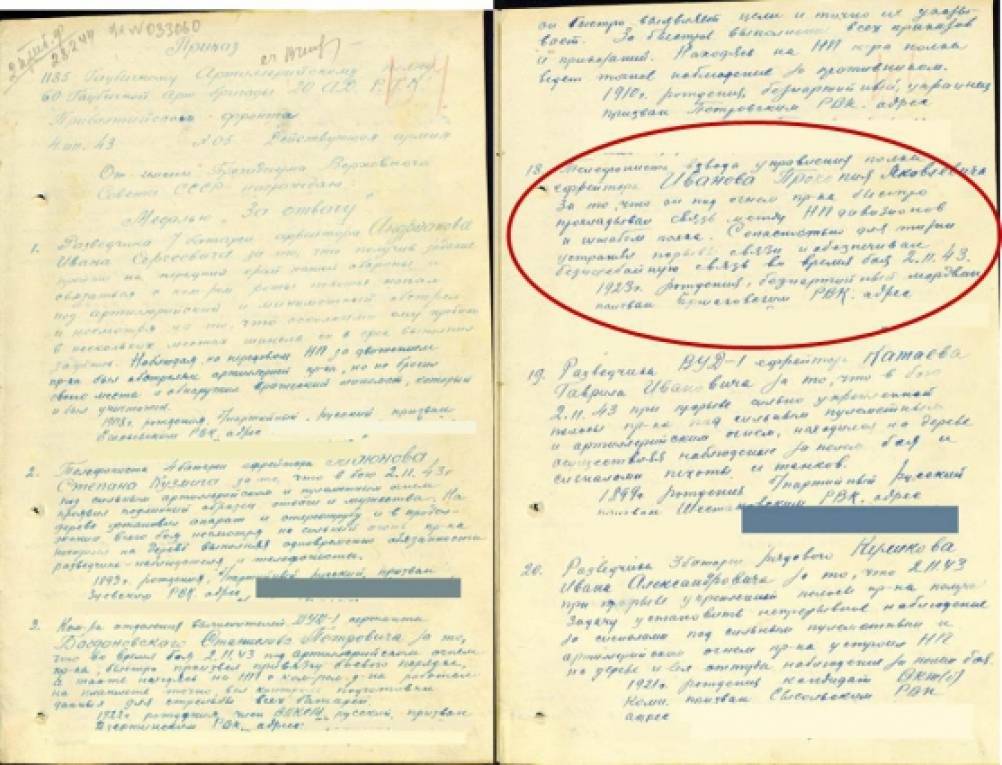 № W033060
Приказ
1185 Гаубичному Артиллерийскому полку
60 Гаубичной Арт бригады 20 АД. Р.Г.К.
Прибалтийского фронта
43 № 05 Действующая армия
От имени Президиума Верховного
Совета СССР награждаю
Медалью „За отвагу"
1. Разведчика 7 батареи ефрейтора
Ивана Сергеевича за то, что получив задание
пройти на передний край нашей обороны и
связаться с ком-ром роты пехоты попал
под артиллерийский и минометный обстрел
и несмотря на то, что осколками ему пробило
в нескольких местах шинель он в срок выполнил
задание. Наблюдая на передовом НП за движением
пр-ка был обстрелян артиллерией пр-ка, но не бросил
своего места и обнаружил вражеский миномет, который
и был уничтожен.
рождения, партийный, русский призван
РВК. адрес
2. Телефониста 4 батареи ефрейтора
Степана Кузмича за то, что в бою 2.11.43г
под сильным артиллерийским и пулеметным огнем
проявил подлинный образец отваги и мужества. На
дерево установил апарат и стереотрубу и в продол-
жении всего боя несмотря на сильный огонь пр-ка
на дереве выполняя одновременно обязанности
разведчика-наблюдателя и телефониста.
1893г. рождения, партийный русский, призван
РВК. адрес
3. Ком-ра отделения вычислителей сержанта
Богдановского Станислава Петровича за то,
что во время боя 2.11.43 под артиллерийским огнем
пр-ка, быстро произвел привязку боевого порядка,
а также находясь на НП с ком-ром д-на работал
на планшете точно, вел контроль подготовки
данных для стрельбы всех батарей.
1922г. рождения, член ВЛКСМ, русский, призван
РВК. адрес
он быстро выявляет цели и точно их указы-
вает. За быстрое выполнение всех приказов
и приказаний. Находясь на НП к-ра полка
ведет точное наблюдение за противником.
1910г. рождения, безпартийный, украинец
призван Петровским РВК. адрес
18. Телефониста взвода управления полка
ефрейтора Иванова Прокопия Яковлевича
За то, что он под огнем пр-ка быстро
прокладывал связь между НП дивизионов
и штабом полка. С опасностью для жизни
устранял порывы связи и обеспечивал
безперебойную связь во время боя 2.11.43.
1923г. рождения, безпартийный мордвин
призван РВК. адрес
19. Разведчика ВУД-1 ефрейтора Катаева
Гаврила Ивановича за то, что в бою
2.11.43 при прорыве сильно укрепленной
полосы пр-ка под сильным пулеметным
и артиллерийским огнем, находился на дереве
осуществлял наблюдение за полем боя и
сигналами пехоты и танков.
1899г. рождения партийный русский
призван РВК. адрес
20. Разведчика 3 батареи рядового Куликова
Ивана Александровича за то, что 2.11.43
при прорыве укрепленной полосы пр-ка получив
задачу установить непрерывное наблюдение
за сигналами под сильным пулеметным и
артиллерийским огнем пр-ка устроил НП
на дереве и вел оттуда наблюдения за полем боя.
1921г. рождения кандидат ВКП(б)
Коми. призван Сысольским РВК
адрес